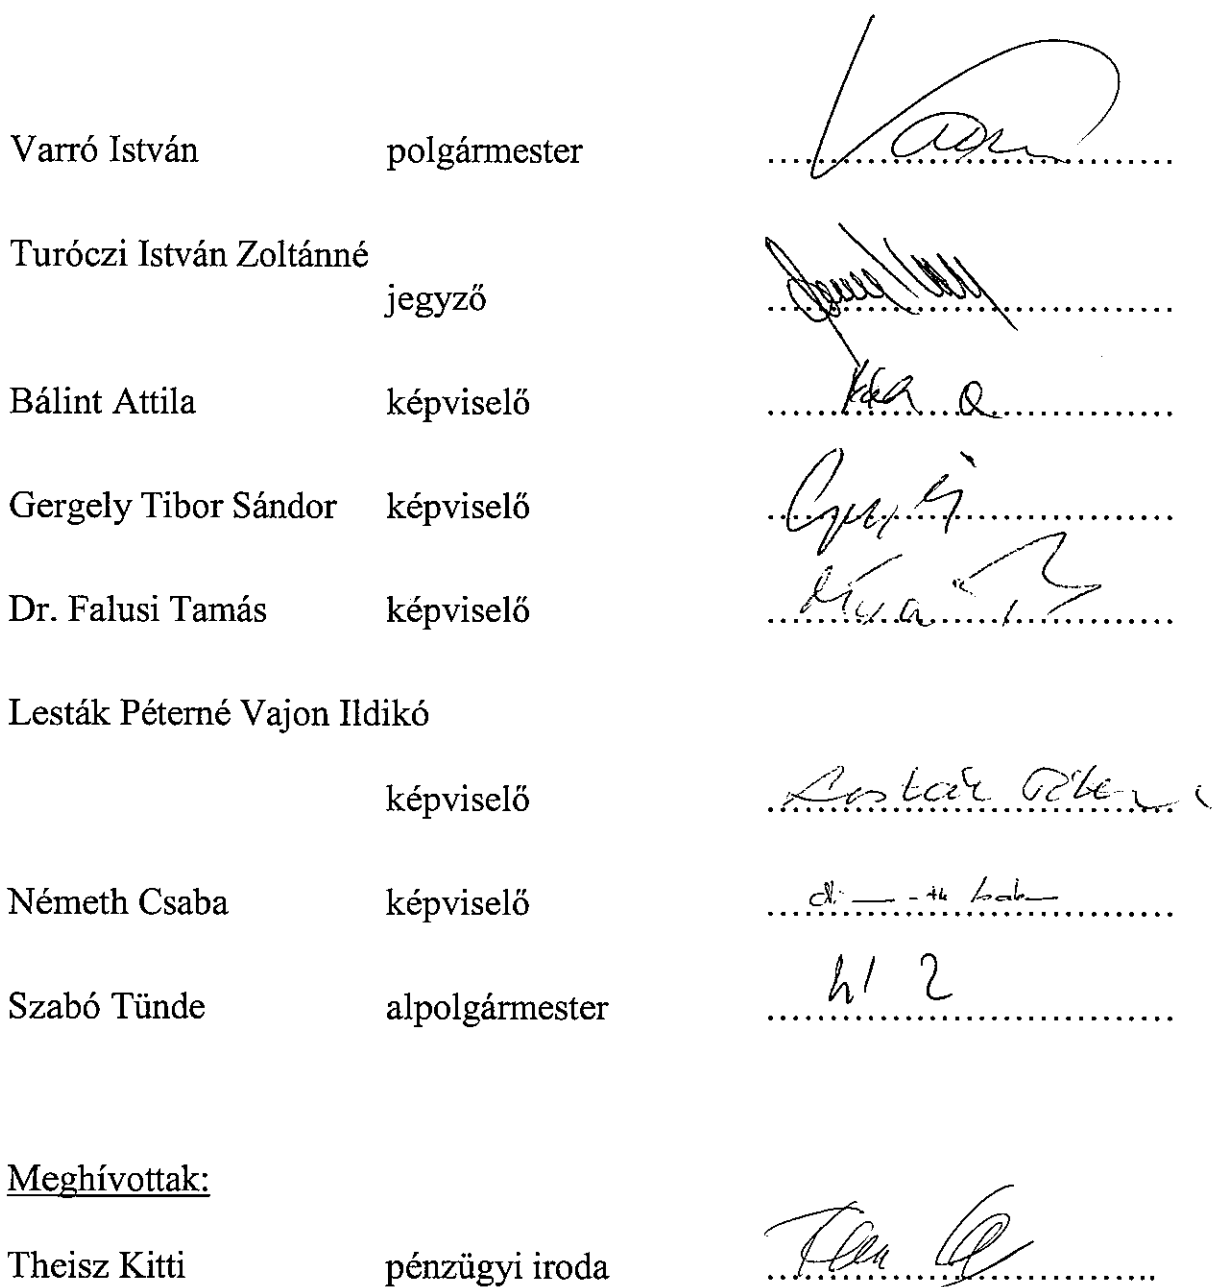 Varró István polgármester ........................................
Turóczi István Zoltánné
jegyző ........................................
Bálint Attila képviselő ........................................
Gergely Tibor Sándor képviselő ........................................
Dr. Falusi Tamás képviselő ........................................
Lesták Péterné Vajon Ildikó
képviselő ........................................
Németh Csaba képviselő ........................................
Szabó Tünde alpolgármester ........................................
Meghívottak:
Theisz Kitti pénzügyi iroda ........................................